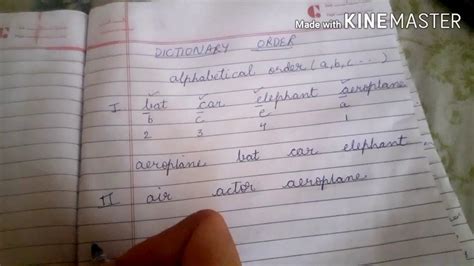 Made with KINEMASTER
DICTIONARY ORDER
alphabetical order (a, b, c ...)
I bat car elephant aeroplane
b c e a
2 3 4 1
aeroplane bat car elephant
II air actor aeroplane